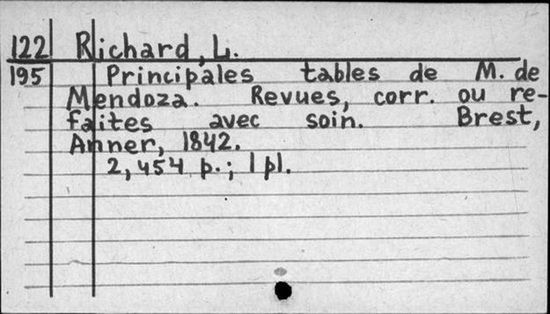 122 Richard, L.
195 Principales tables de M. de
Mendoza. Revues, corr. ou re-
faites avec soin. Brest,
Anner, 1842.
2, 454 p.; 1 pl.